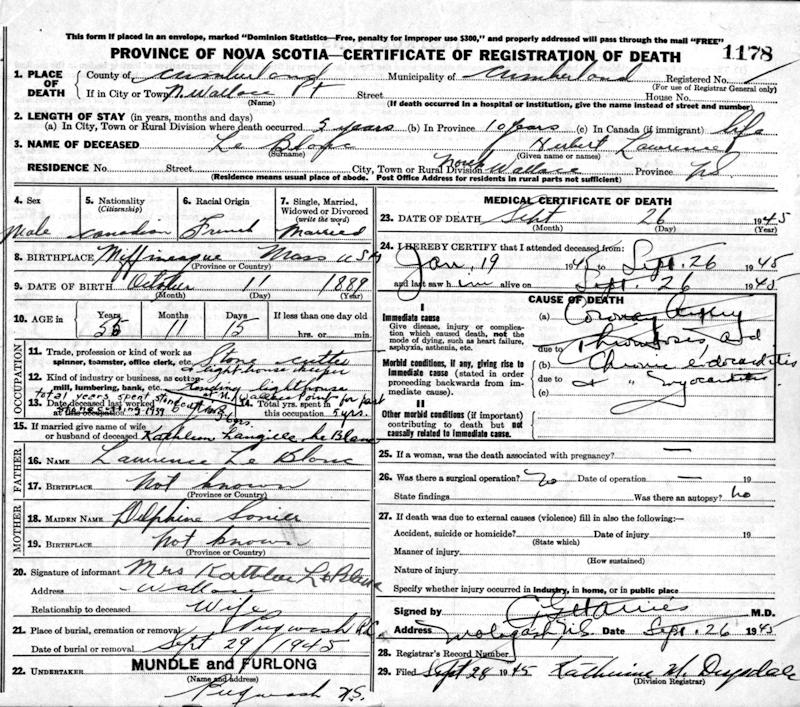 This form if placed in an envelope, marked "Dominion Statistics—Free, penalty for improper use $300," and properly addressed will pass through the mail "FREE"
PROVINCE OF NOVA SCOTIA—CERTIFICATE OF REGISTRATION OF DEATH 1178
1. PLACE OF DEATH County of Cumberland Municipality of Cumberland Registered No.
(For use of Registrar General only)
If in City or Town N. Wallace Pt Street House No.
(Name) (If death occurred in a hospital or institution, give the name instead of street and number)
2. LENGTH OF STAY (in years, months and days)
(a) In City, Town or Rural Division where death occurred 5 years (b) In Province 10 years (c) In Canada (if immigrant) life
3. NAME OF DECEASED Le Blanc Herbert Lawrence
(Surname) (Given name or names)
RESIDENCE No. Street City, Town or Rural Division North Wallace Province N.S.
(Residence means usual place of abode. Post Office Address for residents in rural parts not sufficient)
4. Sex 5. Nationality (Citizenship) 6. Racial Origin 7. Single, Married, Widowed or Divorced (write the word)
Male Canadian French Married
8. BIRTHPLACE Mass USA
(Province or Country)
9. DATE OF BIRTH October 11 1889
(Month) (Day) (Year)
10. AGE in Years Months Days If less than one day old
55 11 15 hrs. or min.
OCCUPATION
11. Trade, profession or kind of work as spinner, teamster, office clerk, etc. Stone cutter
& lighthouse keeper
12. Kind of industry or business, as cotton mill, lumbering, bank, etc. tending lighthouse
at N. Wallace Point for past
13. Date deceased last worked at this occupation 1939 14. Total yrs. spent in this occupation 5 yrs.
15. If married give name of wife or husband of deceased Kathleen Langille Le Blanc
FATHER
16. NAME Lawrence Le Blanc
17. BIRTHPLACE Not known
(Province or Country)
MOTHER
18. MAIDEN NAME Delphine
19. BIRTHPLACE Not known
(Province or Country)
20. Signature of informant Mrs Kathleen Le Blanc
Address Wallace
Relationship to deceased Wife
21. Place of burial, cremation or removal Pugwash R.C.
Date of burial or removal Sept 29/1945
22. UNDERTAKER MUNDLE and FURLONG
(Name and address)
Pugwash N.S.
MEDICAL CERTIFICATE OF DEATH
23. DATE OF DEATH Sept 26 1945
(Month) (Day) (Year)
24. I HEREBY CERTIFY that I attended deceased from:
Jan. 19 1945 to Sept. 26 1945
and last saw him alive on Sept. 26 1945
CAUSE OF DEATH
I
Immediate cause
Give disease, injury or complication which caused death, not the mode of dying, such as heart failure, asphyxia, asthenia, etc.
(a) Coronary
due to Thrombosis, and
Morbid conditions, if any, giving rise to immediate cause (stated in order proceeding backwards from immediate cause).
(b) Chronic Endocarditis
due to " Myocarditis
(c)
II
Other morbid conditions (if important) contributing to death but not causally related to immediate cause.
25. If a woman, was the death associated with pregnancy? —
26. Was there a surgical operation? No Date of operation — 19
State findings Was there an autopsy? No
27. If death was due to external causes (violence) fill in also the following:—
Accident, suicide or homicide? Date of injury 19
(State which)
Manner of injury
(How sustained)
Nature of injury
Specify whether injury occurred in industry, in home, or in public place
Signed by M.D.
Address Malagash N.S. Date Sept. 26 1945
28. Registrar's Record Number
29. Filed Sept 28 1945 Katherine M. Drysdale
(Division Registrar)